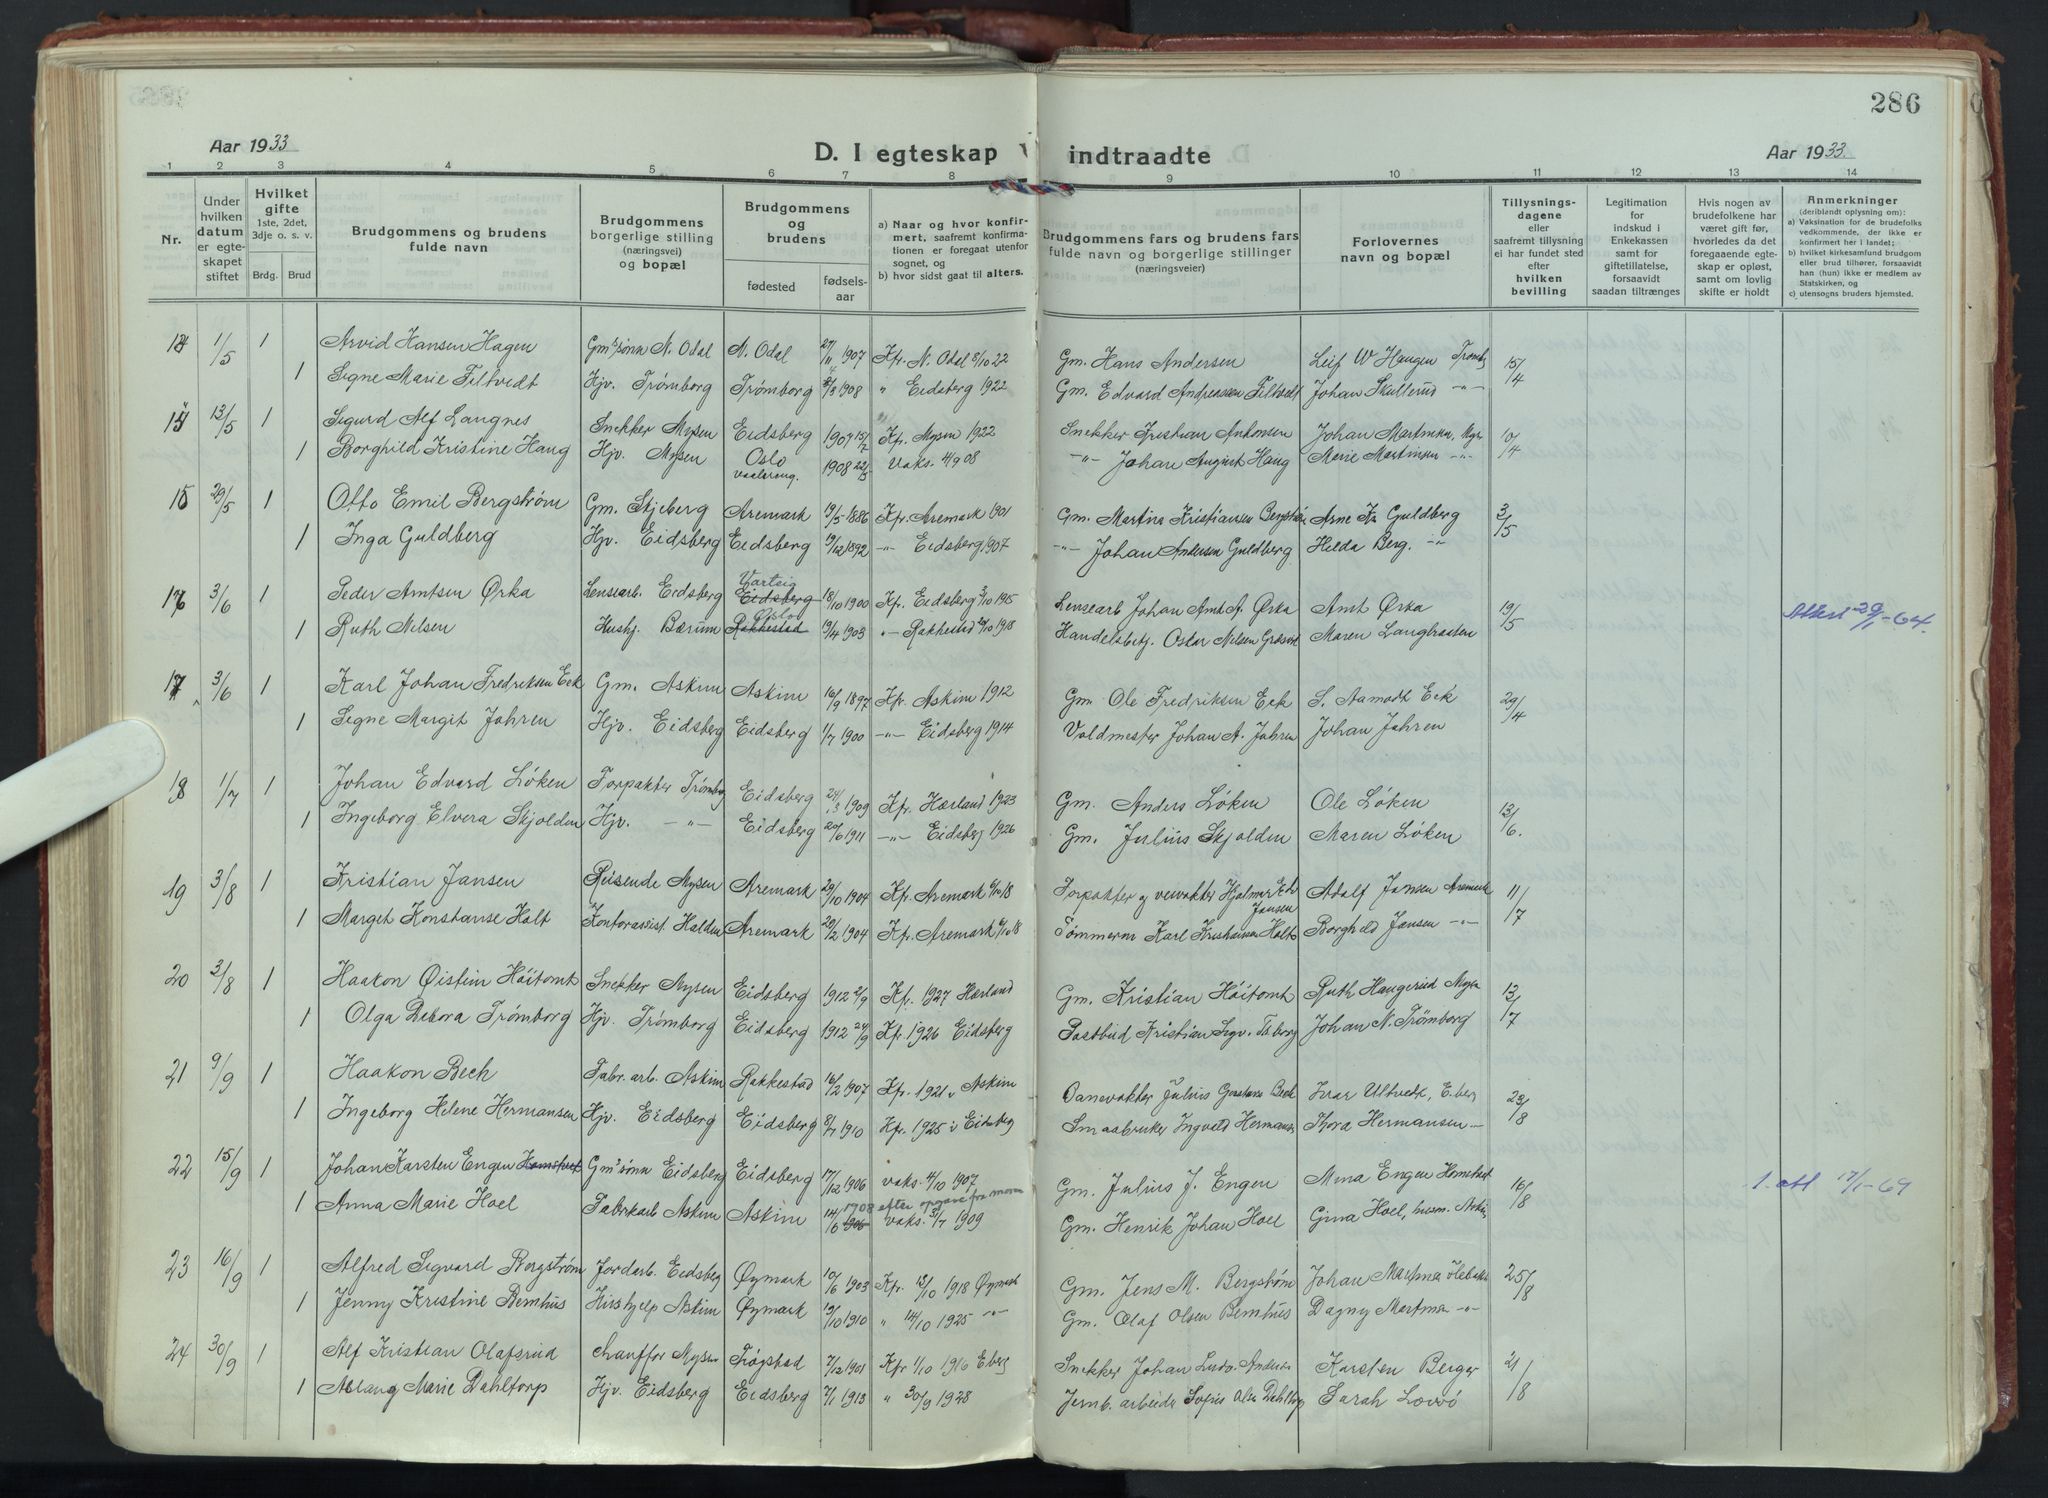 286
Aar 1933
D. I egteskap indtraadte
Aar 1933.
1 2 3 4 5 6 7 8 9 10 11 12 13 14
Nr.
Under hvilken datum er egteskapet stiftet
Hvilket gifte 1ste, 2det, 3dje o. s. v.
Brdg. Brud
Brudgommens og brudens fulde navn
Brudgommens borgerlige stilling (næringsvei) og bopæl
Brudgommens og brudens
fødested fødselsaar
a) Naar og hvor konfirmert, saafremt konfirmationen er foregaat utenfor sognet, og
b) hvor sidst gaat til alters.
Brudgommens fars og brudens fars fulde navn og borgerlige stillinger (næringsveier)
Forlovernes navn og bopæl
Tillysningsdagene eller saafremt tillysning ei har fundet sted efter hvilken bevilling
Legitimation for indskud i Enkekassen samt for giftetillatelse, forsaavidt saadan tiltrænges
Hvis nogen av brudefolkene har været gift før, hvorledes da det foregaaende egteskap er opløst, samt om lovlig skifte er holdt
Anmerkninger (deriblandt oplysning om):
a) Vaksination for de brudefolks vedkommende, der ikke er konfirmert her i landet;
b) hvilket kirkesamfund brudgom eller brud tilhører, forsaavidt han (hun) ikke er medlem av Statskirken, og
c) utensogns bruders hjemsted.
14 1/5 1 Arvid Hansen Hagen Gm's sønn N. Odal N. Odal 27/11 1907 Kfr. N. Odal 8/10 22 Gm. Hans Andersen Leif W Haugen 15/4
1 Signe Marie Filtvedt Hjv. Trømborg Trømborg 1908 " Eidsberg 1922 Gm. Edvard Andreassen Filtvedt Johan Skullerud -"-
15 13/5 1 Sigurd Alf Langnes Snekker Mysen Eidsberg 1907 15/2 Kfr. Mysen 1922 Snekker Kristian Antonsen Johan Martinsen, 10/4
1 Borghild Kristine Haug Hjv. Mysen Oslo Vaalereng. 1908 22/5 Vaks. 4/9 08 -"- Johan August Haug Marie Martinsen -"-
16 29/5 1 Otto Emil Bergstrøm Gm. Skjeberg Aremark 19/5 1886 Kfr. Aremark 1901 Gm. Martins Kristiansen Arne Kr Guldberg 3/5
1 Inga Guldberg Hjv. Eidsberg Eidsberg 19/12 1892 -"- Eidsberg 1907 -"- Johan Andersen Guldberg Helda Berg. -"-
17 3/6 1 Peder Arntsen Ørka Lensearb. Eidsberg Vartsig Eidsberg 18/10 1900 Kfr. Eidsberg 3/10 1915 Lensearb Johan Arnt A. Ørka Arnt Ørka 19/5 Attest 29/1-64.
1 Ruth Nilsen Hushj. Bærum Oslo Rakkestad 19/4 1903 -"- Rakkestad 1918 Handelsbetj. Oskar Nilsen Maren Langbraaten
17 3/6 1 Karl Johan Fredriksen Eek Gm. Askim Askim 16/9 1897 Kfr. Askim 1912 Gm Ole Fredriksen Eek S. Aamodt Eek 29/4
1 Signe Margit Jahren Hjv. Eidsberg Eidsberg 1/7 1900 -"- Eidsberg 1914 Voldmester Johan A. Jahren Johan Jahren
18 1/7 1 Johan Edvard Løken Forpakter Trømborg Eidsberg 24/3 1909 Kfr. Hærland 1923 Gm. Anders Løken Ole Løken 13/6.
1 Ingeborg Elvera Skjolden Hjv. -"- Eidsberg 20/6 1911 -"- Eidsberg 1926 Gm. Julius Skjolden Maren Løken
19 3/8 1 Kristian Jansen Reisende Mysen Aremark 29/10 1904 Kfr. Aremark 6/10 18 Forpakter og veivokter Hjalmar Jansen Adolf Jansen Aremark 11/7
1 Marget Konstanse Holt Kontorassist. Halden Aremark 20/2 1904 Kfr. Aremark 6/10 18 Tømmerm Karl Kristiansen Holt Borghild Jansen -"-
20 3/8 1 Haakon Øistein Høitomt Snekker Mysen Eidsberg 1912 2/9 Kf. 1927 Hærland Gm. Kristian Høitomt Ruth Haugerud Mysen 13/7
1 Olga Debora Trømborg Hjv. Trømborg Eidsberg 1912 24/9 Kfr. 1926 Eidsberg Postbud Kristian Johan N. Trømborg
21 9/9 1 Haakon Bech Fabr. arb. Askim Rakkestad 16/2 1907 Kfr. 1921 i Askim Banevokter Julius Bech Ivar Ultvedt, E.berg 23/8
1 Ingeborg Helene Hermansen Hjv. Eidsberg Eidsberg 8/7 1910 Kfr. 1925 i Eidsberg Smaabruker Ingvald Hermansen Thora Hermansen -
22 15/9 1 Johan Karsten Engen Gm's sønn Eidsberg Eidsberg 17/12 1906 vaks. 4/10 1907 Gm. Julius J. Engen Mina Engen 16/8 1. att 17/1-69
1 Anna Marie Hoel Fabrikarb Askim Askim 14/6 1908 1906 efter opgave fra moren vaks. 3/7 1909 Gm. Henrik Johan Hoel Gina Hoel, Askim
23 16/9 1 Alfred Sigvard Bergstrøm Jordarb. Eidsberg Øymark 10/6 1903 Kfr. 13/10 1918 Øymark Gm. Jens M. Bergstrøm Johan Martinsen 25/8
1 Jenny Kristine Bemhus Hushjelp Askim Øymark 19/10 1910 " 14/10 1925 -"- Gm. Olaf Olsen Bemhus Dagny Martinsen -"-
24 30/9 1 Alf Kristian Olafsrud Chauffør Mysen Trøgstad 7/12 1901 Kfr 1/10 1916 Eberg Snekker Johan Ludv. Andersen Karsten Berger 21/8
1 Aslaug Marie Dahltorp Hjv. Eidsberg Eidsberg 7/1 1913 " 30/9 1928 Jernb. arbeider Sofus Olsen Dahltorp Sarah Lövvö